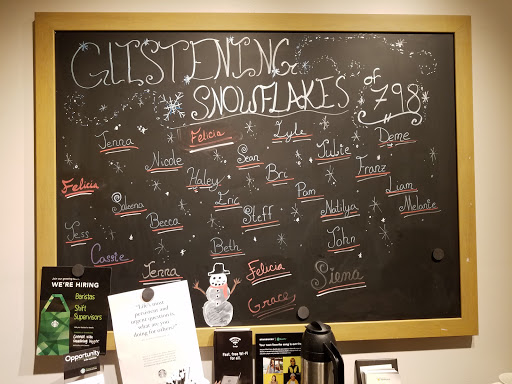 GLISTENING
SNOWFLAKES of 798
Jenna
Felicia
Lyle
Deme
Nicole
Sean
Julie
Felicia
Haley
Bri
Franz
Saleena
Eric
Pam
Liam
Jess
Becca
Steff
Natilya
Melanie
Cassie
Beth
John
Jenna
Felicia
Siena
Grace
WE'RE HIRING
Baristas
Shift
Supervisors
Opportunity
"Life's most
persistent and
urgent question is,
what are you
doing for others?"
Fast, free Wi-Fi
for all.